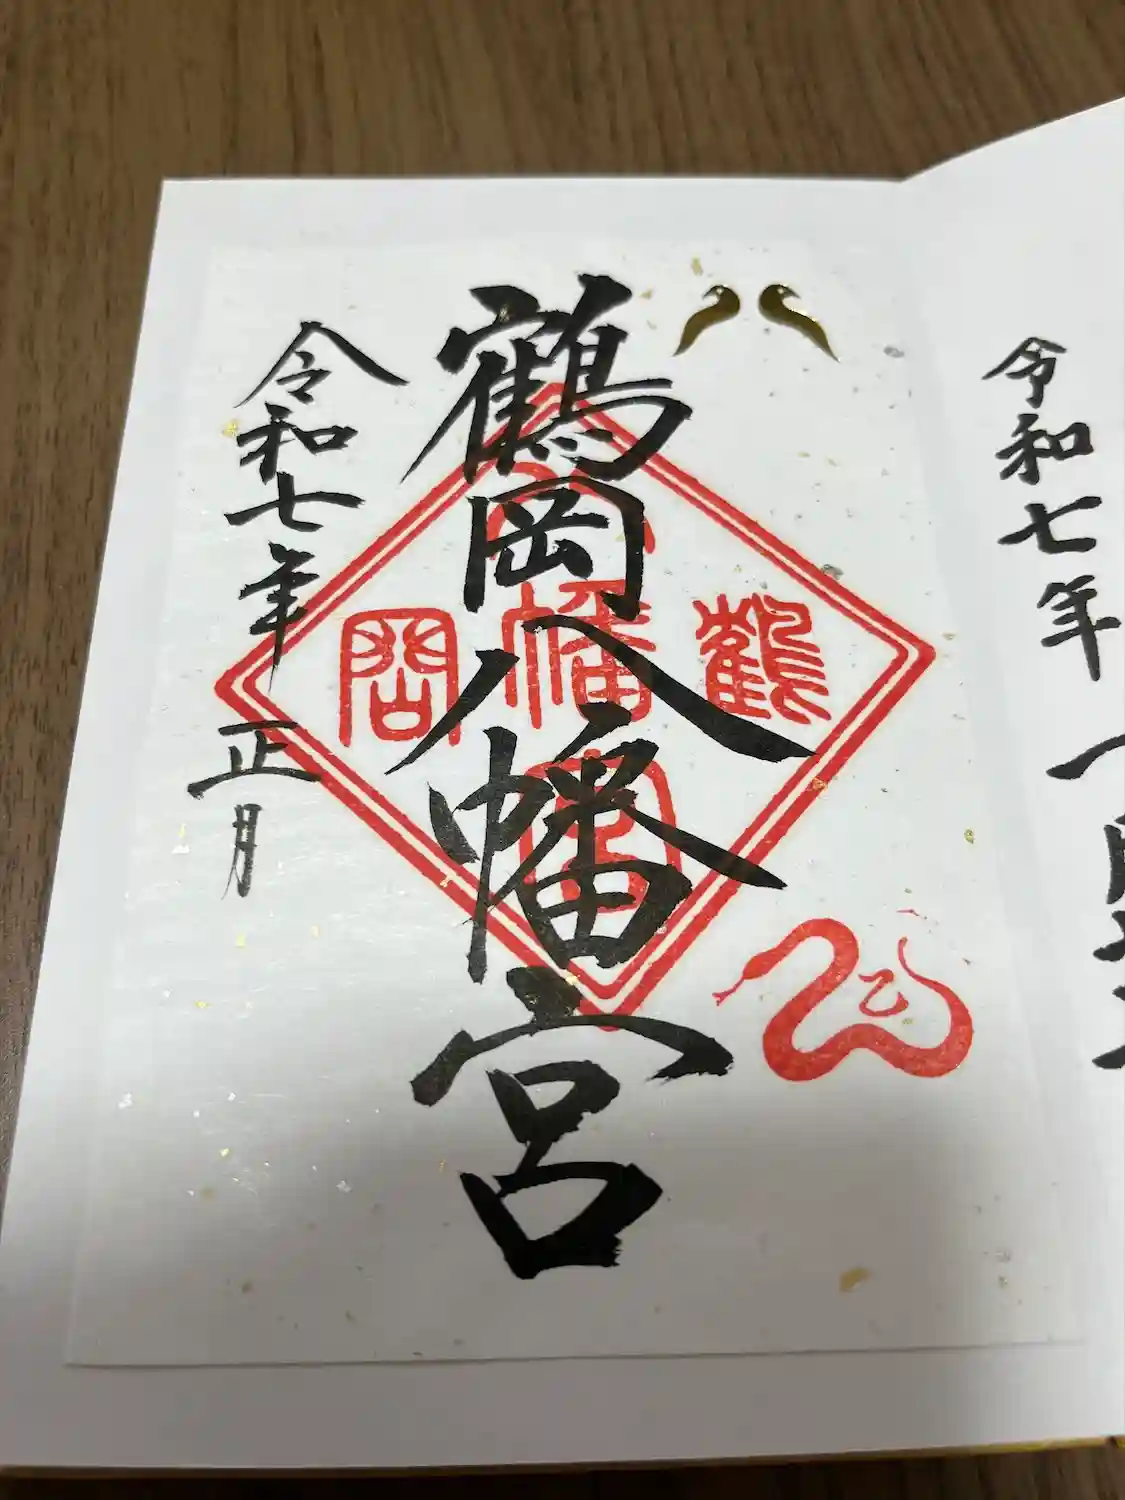 令和七年 一
鶴岡八幡宮
鶴岡八幡宮
巳
令和七年 正月